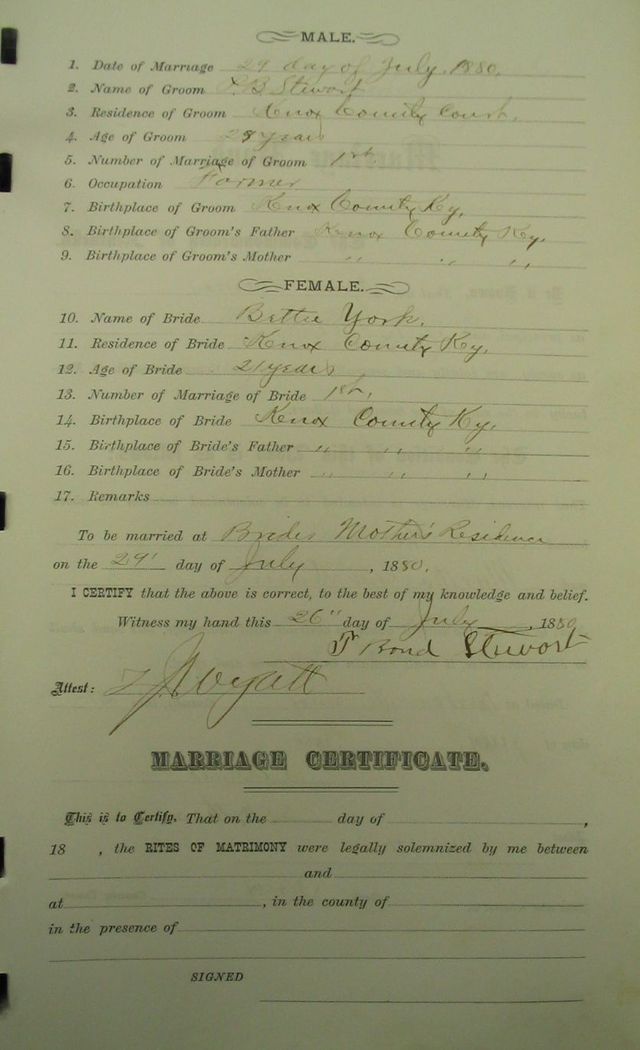 MALE.
1. Date of Marriage 29 day of July, 1880.
2. Name of Groom T. B Stewort
3. Residence of Groom Knox County Court.
4. Age of Groom 28 years
5. Number of Marriage of Groom 1st
6. Occupation Farmer
7. Birthplace of Groom Knox County Ky,
8. Birthplace of Groom's Father Knox County Ky.
9. Birthplace of Groom's Mother " " "
FEMALE.
10. Name of Bride Bettie York.
11. Residence of Bride Knox County Ky,
12. Age of Bride 21 years
13. Number of Marriage of Bride 1st,
14. Birthplace of Bride Knox County Ky,
15. Birthplace of Bride's Father " " "
16. Birthplace of Bride's Mother " " "
17. Remarks
To be married at Brides Mother's Residence
on the 29" day of July, 1880.
I CERTIFY that the above is correct, to the best of my knowledge and belief.
Witness my hand this 26" day of July, 1880
T Bond Stewort
Attest: Wyatt
MARRIAGE CERTIFICATE.
This is to Certify, That on the day of ,
18 , the RITES OF MATRIMONY were legally solemnized by me between
and
at , in the county of
in the presence of
SIGNED